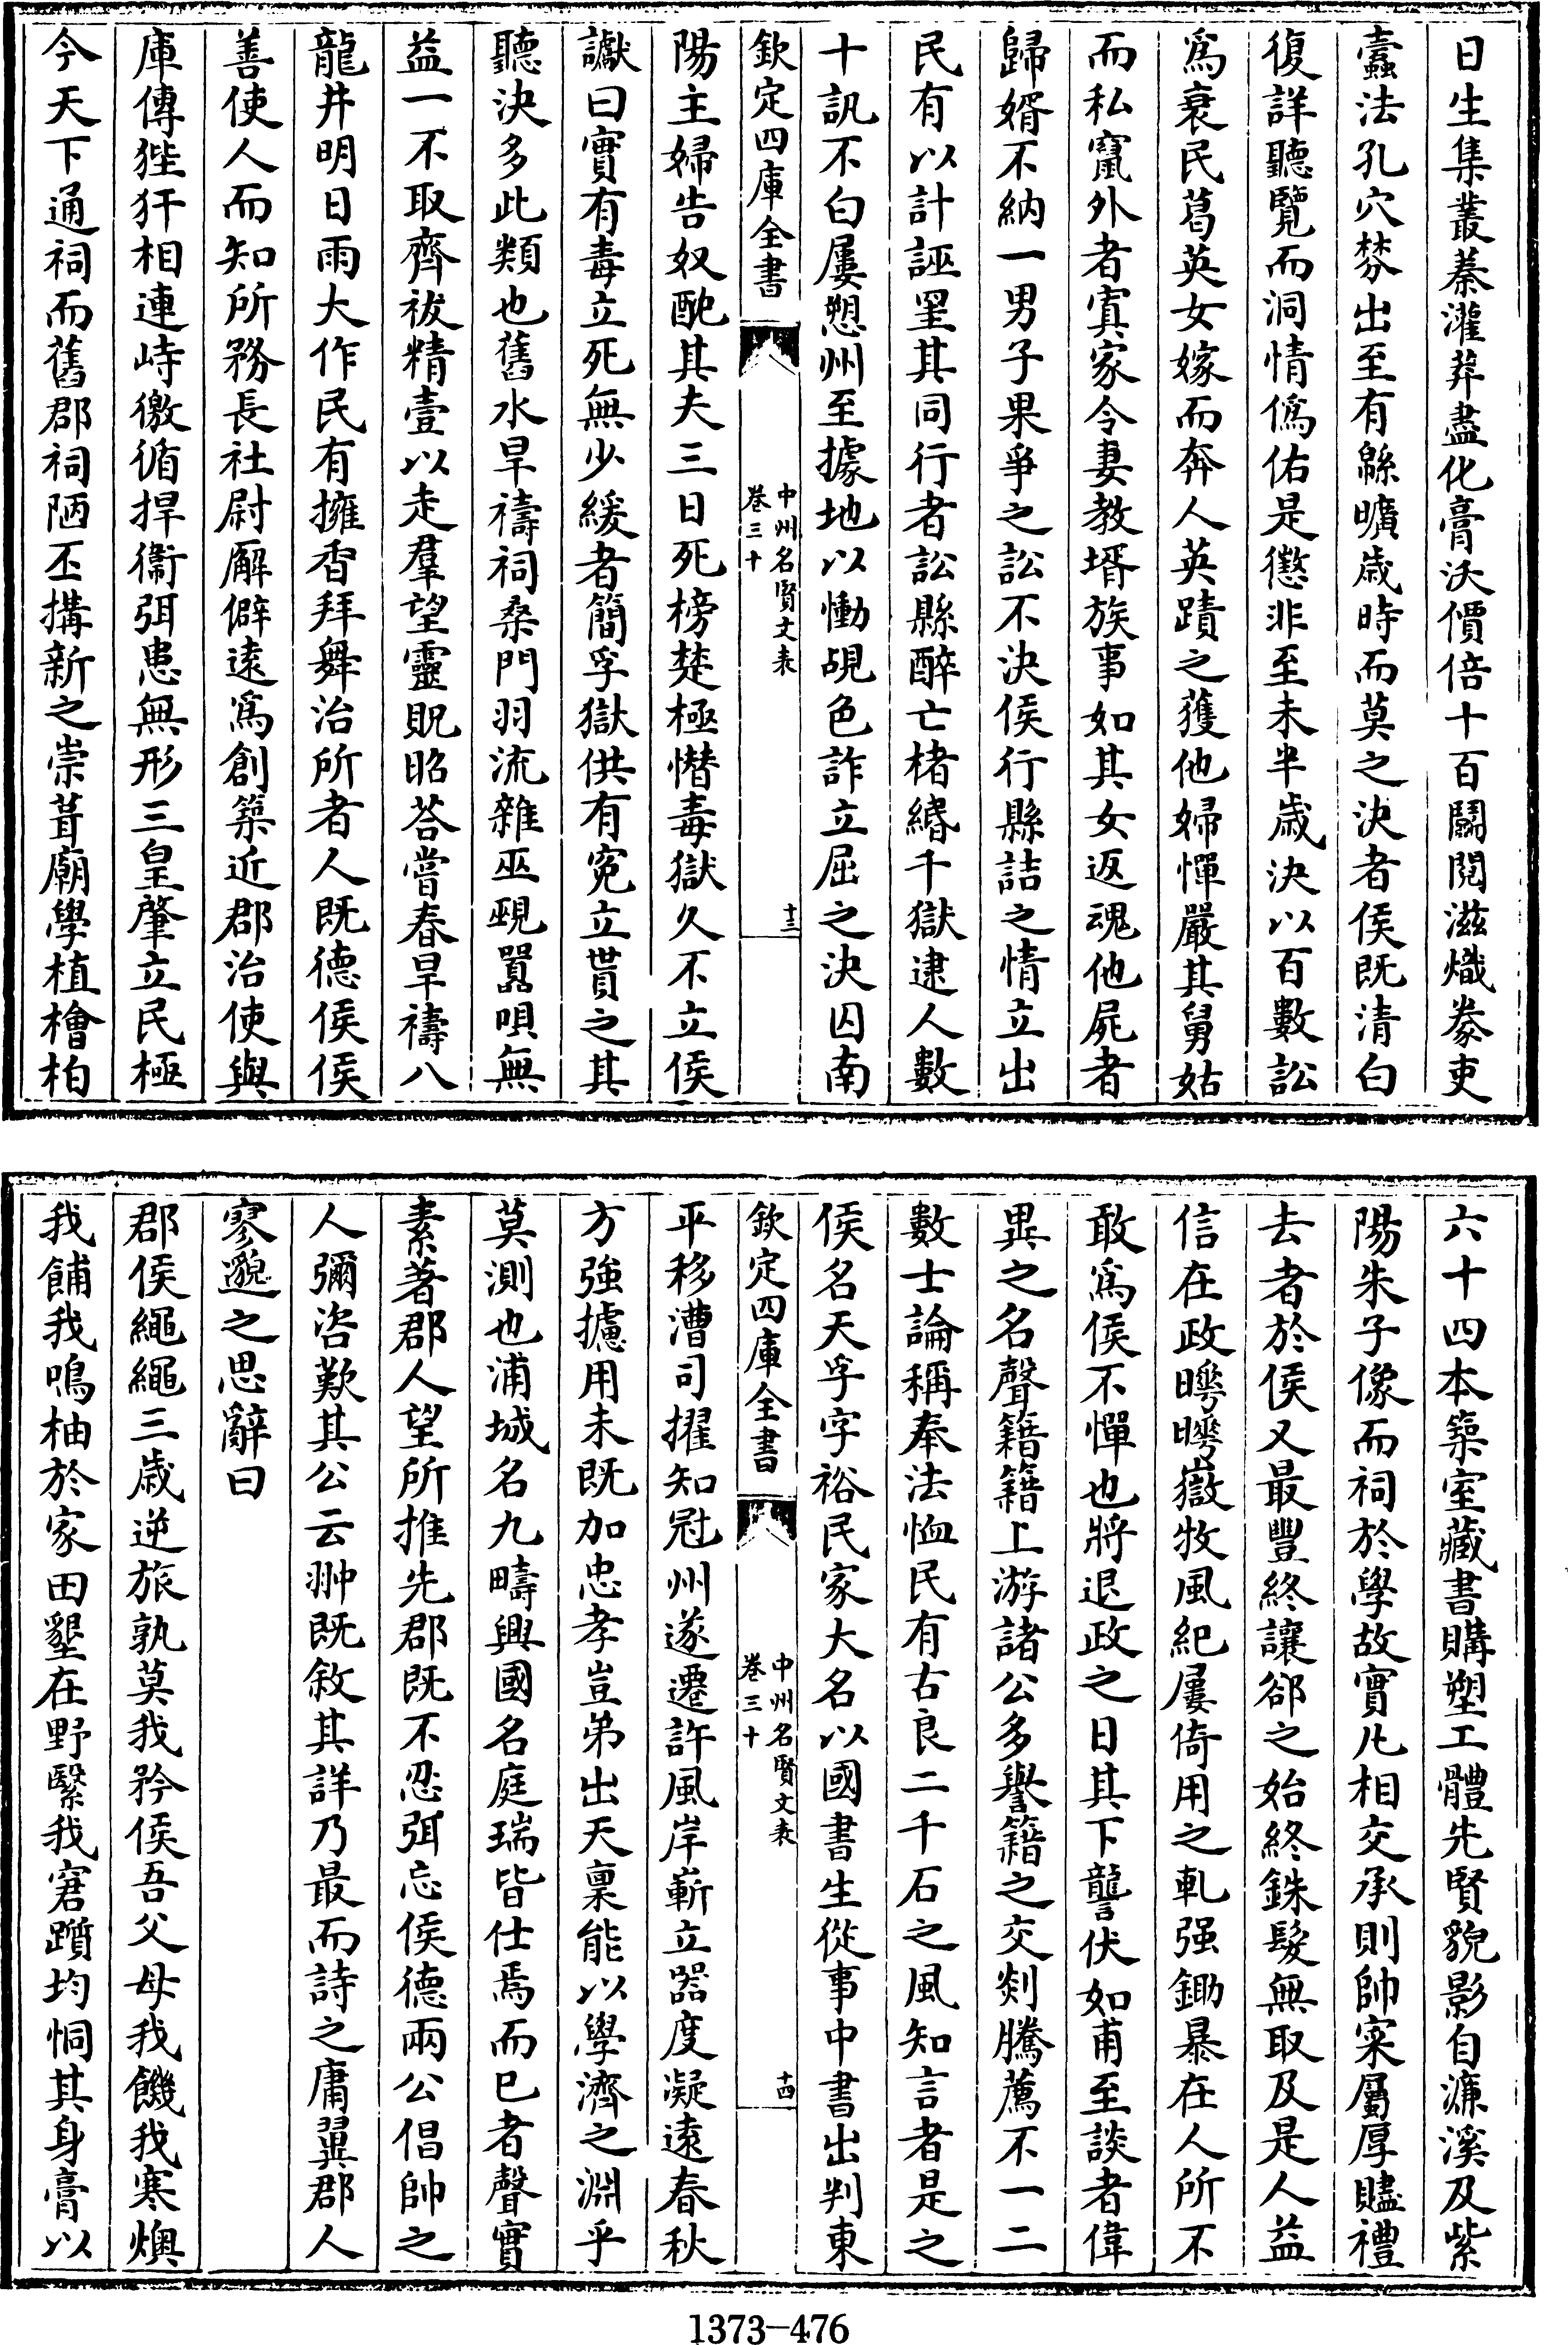 日生集叢蓁灌莽盡化膏沃價倍十百闤閲滋熾豢吏
蠧法孔穴棼出至有緜曠歲時而莫之決者侯既清白
復詳聽覽而洞情僞佑是懲非至未半歲決以百數訟
爲衰民葛英女嫁而奔人英蹟之獲他婦憚嚴其舅姑
而私竄外者寘家令妻教壻族事如其女返魂他屍者
歸婿不納一男子果爭之訟不決侯行縣詰之情立出
民有以計誣罣其同行者訟縣醉亡楮緡千獄逮人數
十訊不白屢愬州至據地以慟覘色詐立屈之決囚南
欽定四庫全書
中州名賢文表
卷三十
十三
陽主婦告奴酖其夫三日死榜楚極憯毒獄久不立侯
讞曰實有毒立死無少緩者簡孚獄供有寃立貰之其
聽決多此類也舊水旱禱祠桑門羽流雜巫覡嚚唄無
益一不取齊祓精壹以走羣望靈貺昭荅嘗春旱禱八
龍井明日雨大作民有擁香拜舞治所者人既德侯侯
善使人而知所務長社尉廨僻遠爲創築近郡治使與
庫傳狴犴相連峙徼循捍衞弭患無形三皇肇立民極
今天下通祠而舊郡祠陋丕搆新之崇葺廟學植檜柏
六十四本築室藏書購塑工體先賢貌影自濂溪及紫
陽朱子像而祠於學故實凡相交承則帥寀屬厚贐禮
去者於侯又最豐終讓郤之始終銖髮無取及是人益
信在政暭暭嶽牧風紀屢倚用之軋强鋤暴在人所不
敢爲侯不憚也將退政之日其下讋伏如甫至談者偉
異之名聲籍籍上游諸公多譽籍之交剡騰薦不一二
數士論稱奉法恤民有古良二千石之風知言者是之
侯名天孚字裕民家大名以國書生從事中書出判東
欽定四庫全書
中州名賢文表
卷三十
十四
平移漕司擢知冠州遂遷許風岸嶄立器度凝遠春秋
方強攄用未既加忠孝豈弟出天禀能以學濟之淵乎
莫測也浦城名九疇興國名庭瑞皆仕焉而已者聲實
素著郡人望所推先郡既不忍弭忘侯德兩公倡帥之
人彌咨歎其公云翀既敘其詳乃最而詩之庸翼郡人
寥邈之思辭曰
郡侯繩繩三歲逆旅孰莫我矜侯吾父母我饑我寒燠
我餔我鳴柚於家田墾在野繄我窘躓均恫其身膏以